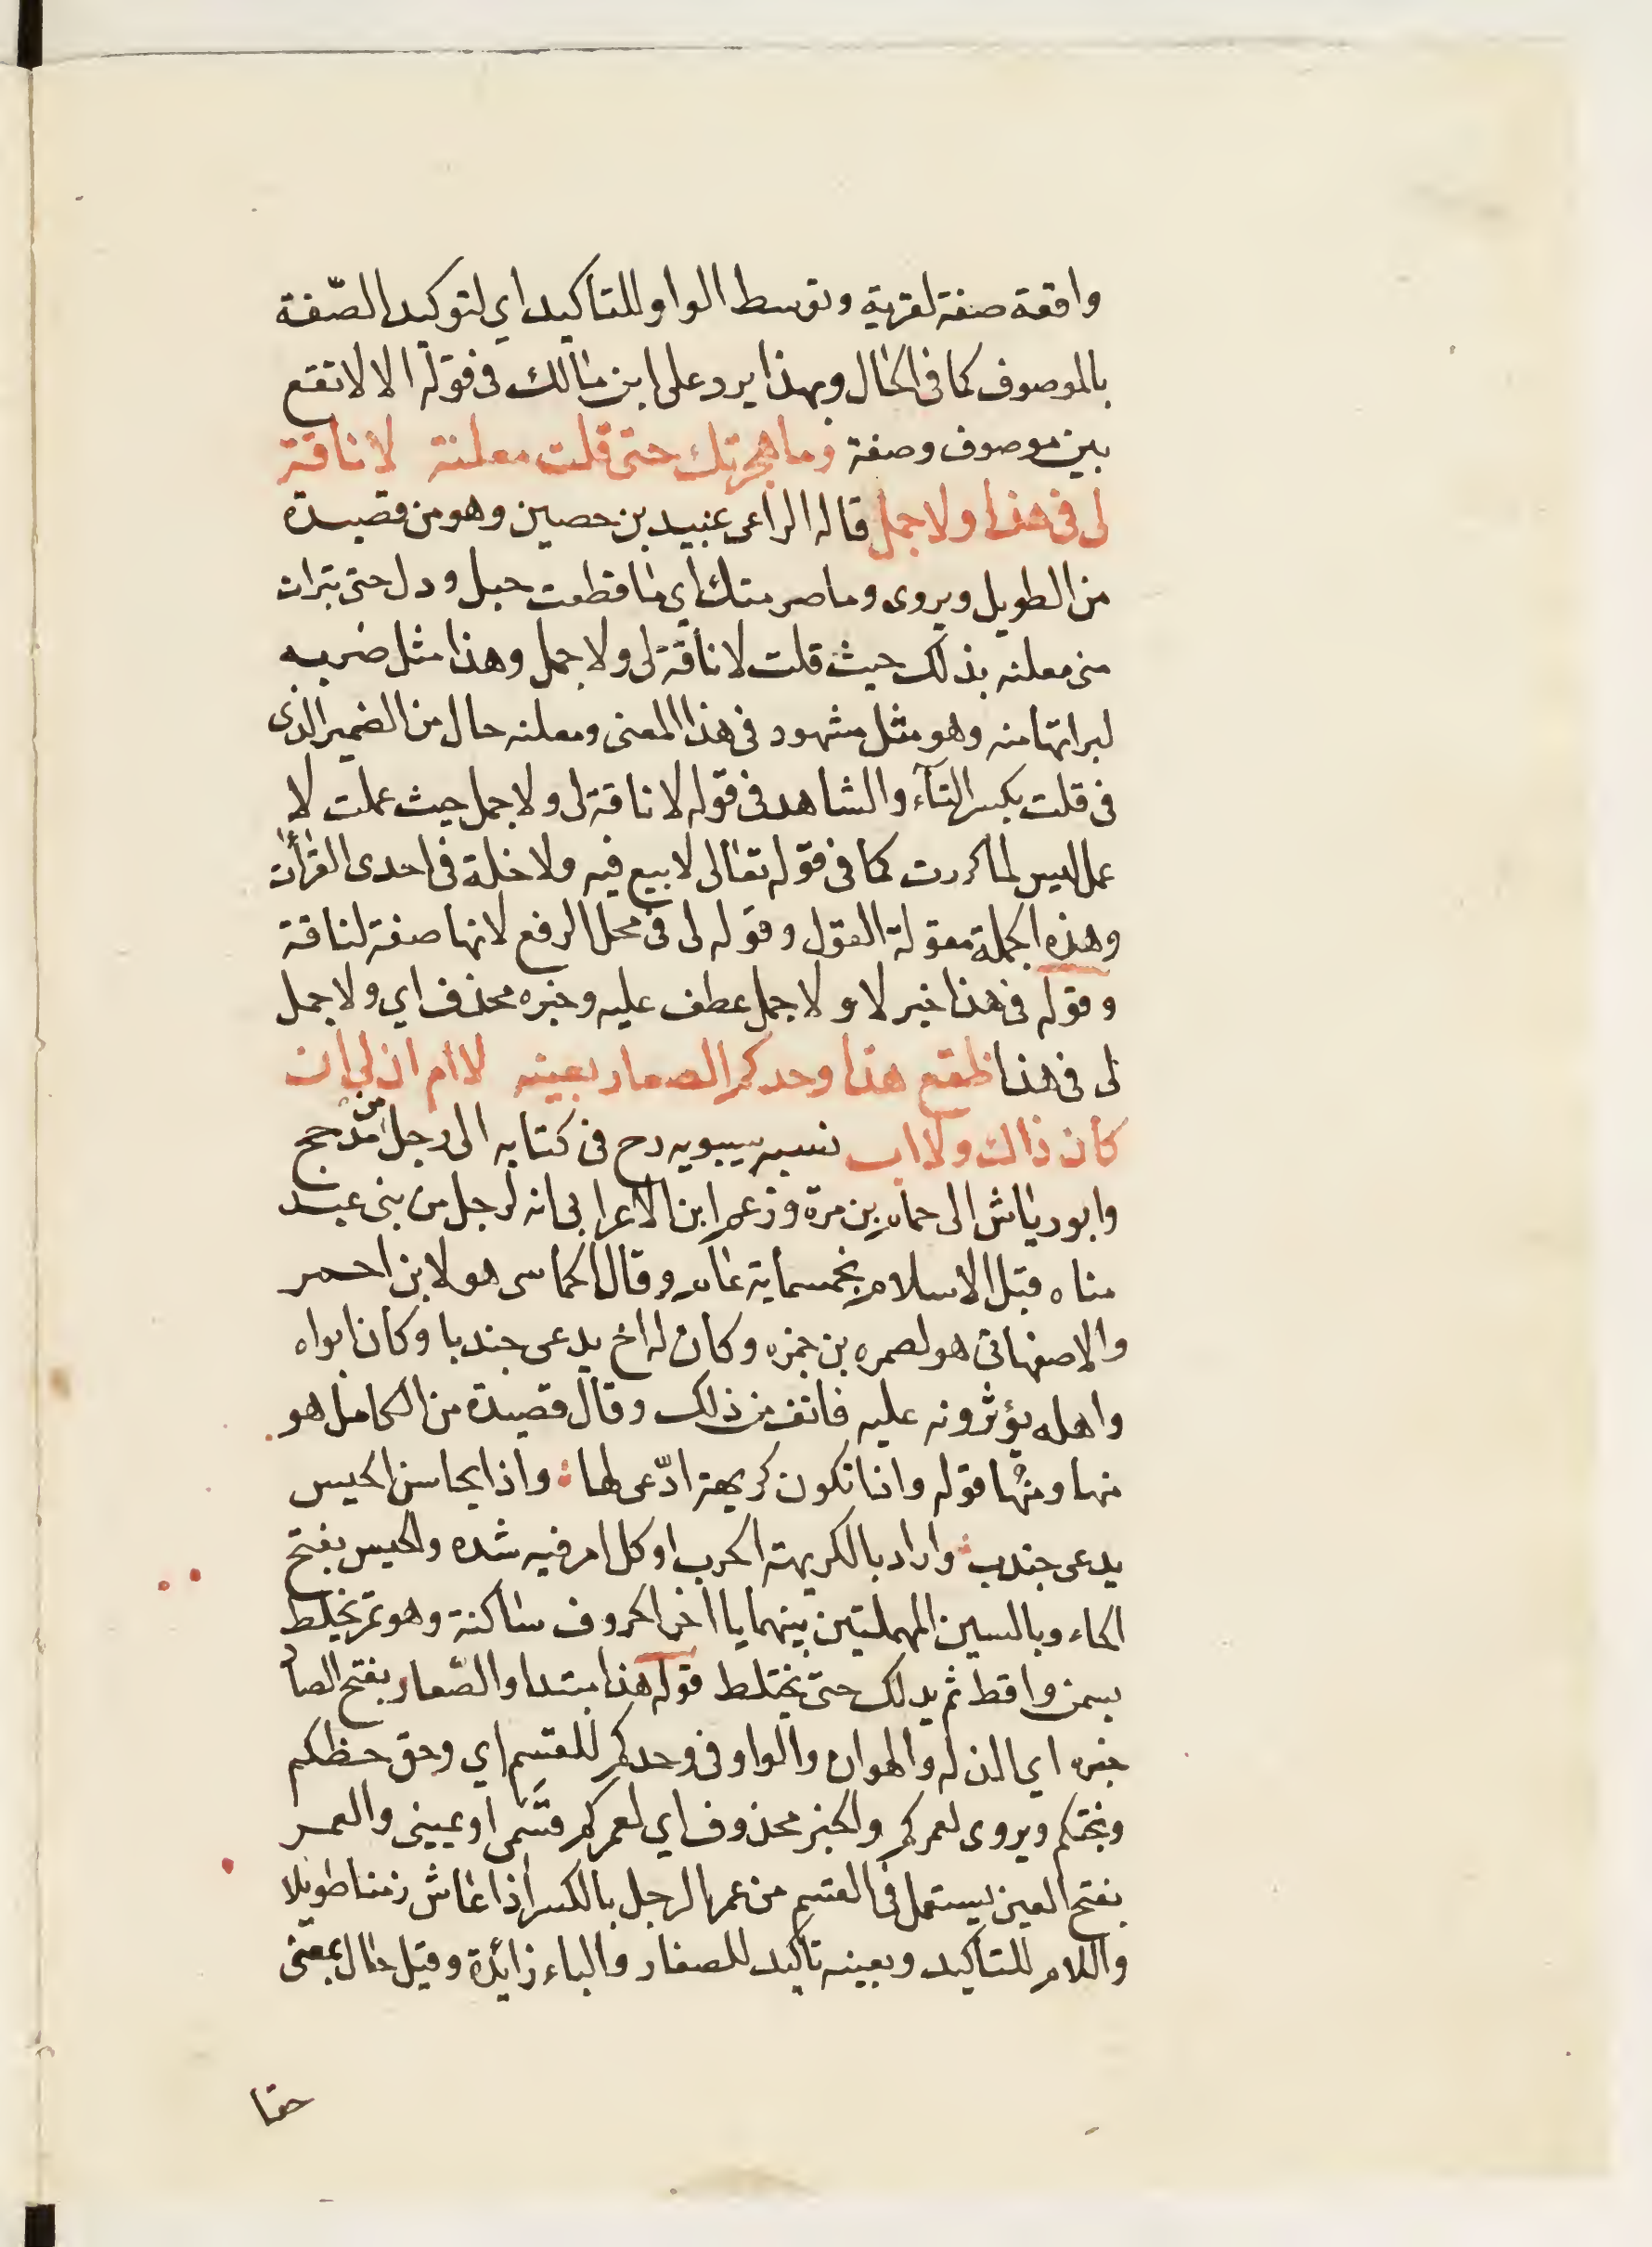 واقعة صفة لقرية وتوسط الواو للتاكيد اي لتوكيد الصّفة
بالموصوف كما في الحال وبهذا يرد على ابن مالك في قوله الا لا تقع
بين موصوف وصفة وما هجرتك حتى قلت معلنة لا ناقة
لى فى هذا ولا جمل قاله الراعى عبيد بن حصين وهو من قصيدة
من الطويل ويروى وما صرمتك اي ما قطعت حبل ودل حتى تبرات
منى معلنه بذلك حيث قلت لا ناقة لى ولا جمل وهذا مثل ضربه
لبراتها منه وهو مثل مشهود في هذا المعنى ومعلنه حال من الضمير الذى
فى قلت بكسر التآء والشاهد فى قوله لا ناقة لى ولا جمل حيث عملت لا
عمل ليس لما كررت كما فى قوله تعالى لا بيع فيه ولا خلة فى احدى القرأات
وهذه الجملة مقولة القول وقوله لى فى محل الرفع لانها صفة لناقة
وقوله فى هذا خبر لا ولا جمل عطف عليه وخبره محذف اي ولا جمل
لى فى هذا ظقع هذا وحدكم الصعار بعينه لا ام لى ان
كان ذاك ولا اب نسبه سيبويه رح فى كتابه الى رجل من مذحج
وابو رياش الى حمام بن مرة وزعم ابن الاعرابى انه لرجل من بنى عبد
مناه قبل الاسلام بخمسماية عام وقال الحماسى هو لابن احمر
والاصفهانى هو لصمره بن جمزه وكان له اخ يدعى جندبا وكان ابواه
واهله يؤثرونه عليه فانف من ذلك وقال قصيدة من الكامل هو
منها ومنها قوله واذا تكون كريهة ادّعى لها واذا يحاس الحيس
يدعى جندب واراد بالكريهة الحرب او كل امر فيه شده والحيس بفتح
الحاء وبالسين المهملتين بينهما يا اخر الحروف ساكنة وهو تمر يخلط
بسمن واقط ثم يدلك حتى يختلط قوله هذا مبتدا والصّعار بفتح الصاد
خبره اي الذله والهوان والواو فى وحدكم للقسم اي وحق حظكم
وبختكم ويروى لعمركم والخبر محذوف اي لعمركم قسّمى او يمينى والعمر
بفتح العين يستعمل فى القسم من عمر الرجل بالكسر اذا عاش زمنا طويلا
واللام للتاكيد وبعينه تاكيد للصغار والباء زائدة وقيل حال بمعنى
حقا